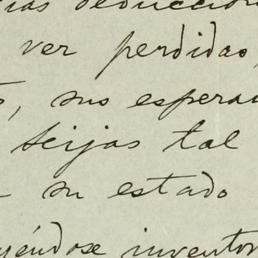 ias deduccion
ver perdidas,
, sus espera
Seijas tal
su estado
yéndose inventor